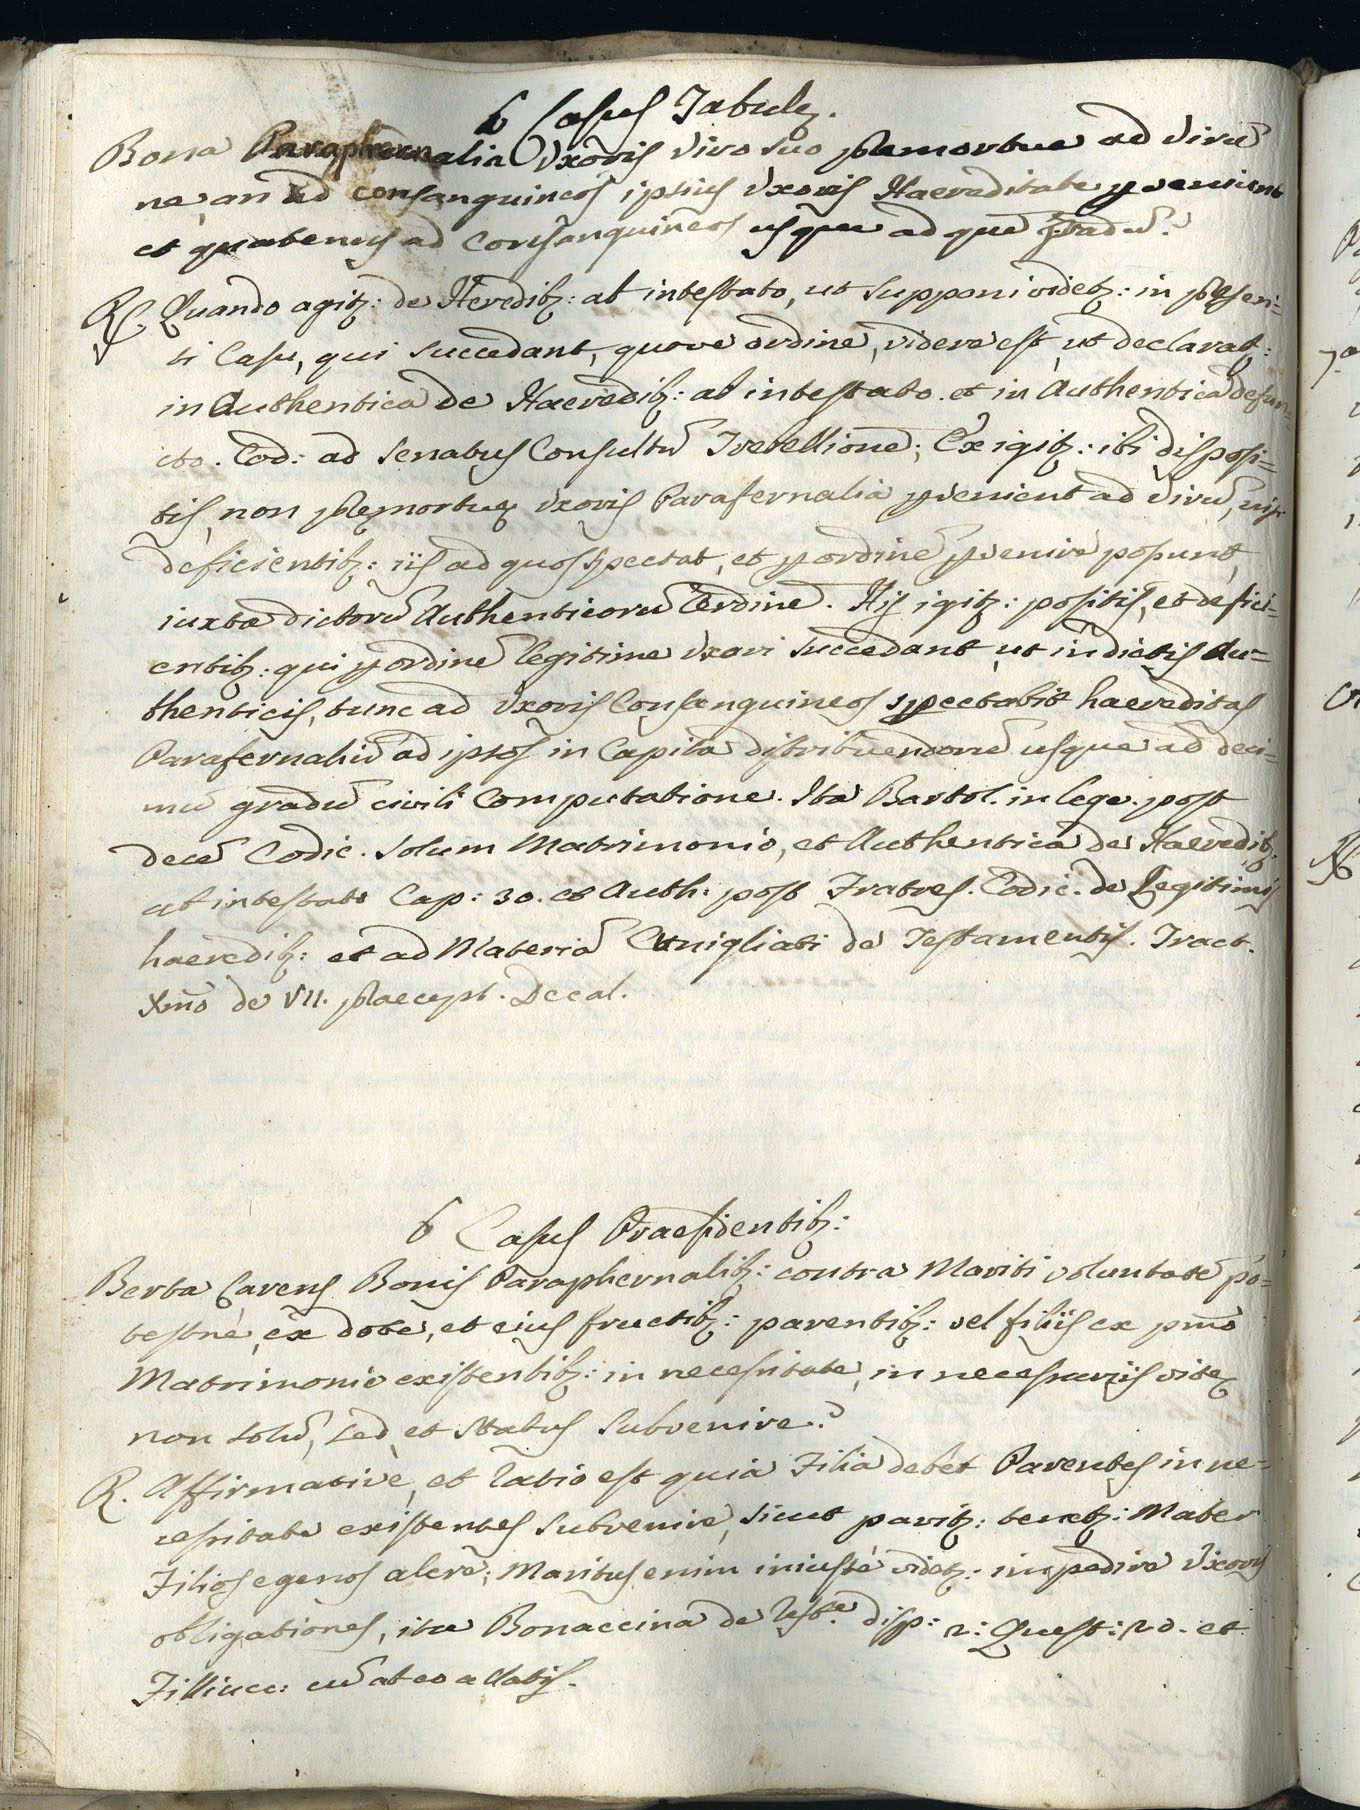 6 Casus Tabulę.
Bona Paraphernalia Uxoris viro suo præmortuæ ad virū
ne, an ad consanguineos ipsius Uxoris Haereditate pvenient
et quatenus ad Consanguineos usque ad quē gradū?
R. Quando agitʒ: de Hereditʒ: ab intestato, ut supponi videtʒ: in præsen=
ti Casu, qui succedant, quove ordine, videre est, ut declaratʒ:
in Authentica de Haeredibʒ: ab intestato. et in Authentica defun=
cto. Cod: ad Senatus Consultū Trebellione; Ex igitʒ: ibi disposi=
tis, non præmortuę Uxoris Parafernalia pvenient ad virū, nisi
deficientibʒ: iis ad quos spectat, et p ordinē pvenire possunt,
iuxta dictorū Authenticorū Ordinē. His igitʒ: positis, et defici=
entibʒ: qui p ordinē legitime Uxori succedant, ut in dictis Au=
thenticis, tunc ad Uxoris Consanguineos spectabit haereditas
Parafernaliū ad ipsos in Capita distribuendorū usque ad deci=
mū gradū civili Computatione. Ita Bartol. in lege. post
decē Codic. Solum Matrimonio, et Authentica de Haeredibʒ.
ab intestato Cap: 30. et Auth: post Fratres. Codic. de Legitimis
haeredibʒ: et ad Materiā Cunigliati de Testamentis. Tract.
Xmo de VII. Præcept. Decal.
6 Casus Praesidentibʒ:
Berta Carens Bonis Paraphernalibʒ: contra Mariti voluntatē po=
testne, ex dote, et eius fructibʒ: parentibʒ: vel filiis ex pmo
Matrimonio existentibʒ: in necessitate, in necessariis vitę
non solū, sed, et Status Subvenire?
R. Affirmative, et ratio est quia Filia debet Parentes in ne=
cessitate existentes subvenire, sicut paritʒ: tenetʒ: Mater
Filios egenos alere; Maritus enim iniuste videtʒ: impedire Uxoris
obligationes, ita Bonaccina de Rest.e disp: 2: Quest: 20. et
Filliucc: cū ab eo allatis.